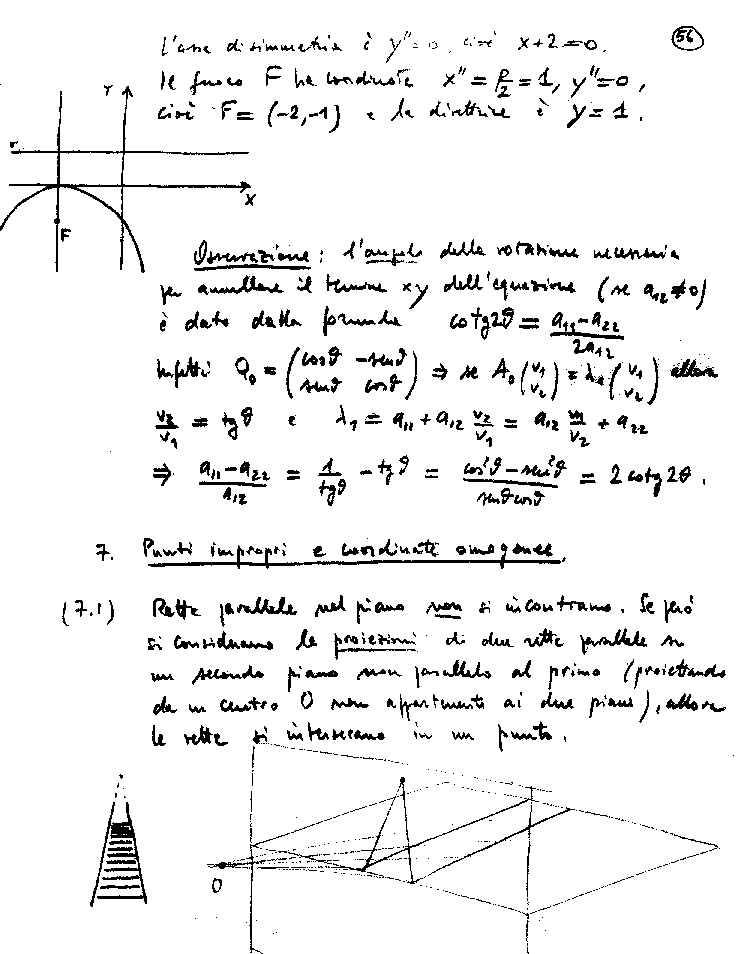 56
L'asse di simmetria è y''=0, cioè x+2=0.
Il fuoco F ha coordinate x'' = p/2 = 1, y''=0,
cioè F = (-2,-1) e la direttrice è y=1.
Y
X
F
Osservazione: l'angolo della rotazione necessaria
per annullare il termine xy dell'equazione (se a₁₂≠0)
è dato dalla formula cotg2ϑ = (a₁₁-a₂₂)/(2a₁₂)
Infatti Q₀ = (cosϑ -senϑ / senϑ cosϑ) ⇒ se A₀(v₁ / v₂) = λ₁(v₁ / v₂) allora
v₂/v₁ = tgϑ e λ₁ = a₁₁ + a₁₂ v₂/v₁ = a₁₂ v₁/v₂ + a₂₂
⇒ (a₁₁-a₂₂)/a₁₂ = 1/tgϑ - tgϑ = (cos²ϑ - sen²ϑ)/(senϑcosϑ) = 2cotg2ϑ.
7. Punti impropri e coordinate omogenee.
(7.1) Rette parallele nel piano non si incontrano. Se però
si considerano le proiezioni di due rette parallele su
un secondo piano non parallelo al primo (proiettando
da un centro O non appartenente ai due piani), allora
le rette si intersecano in un punto.
O